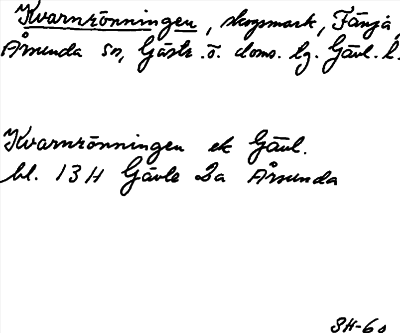 Kvarnrönningen, skogsmark, Fänja,
Årsunda sn, Gästr. ö. doms. lg. Gävl. l.
Kvarnrönningen ek Gävl.
bl. 13H Gävle 2a Årsunda
SH-60